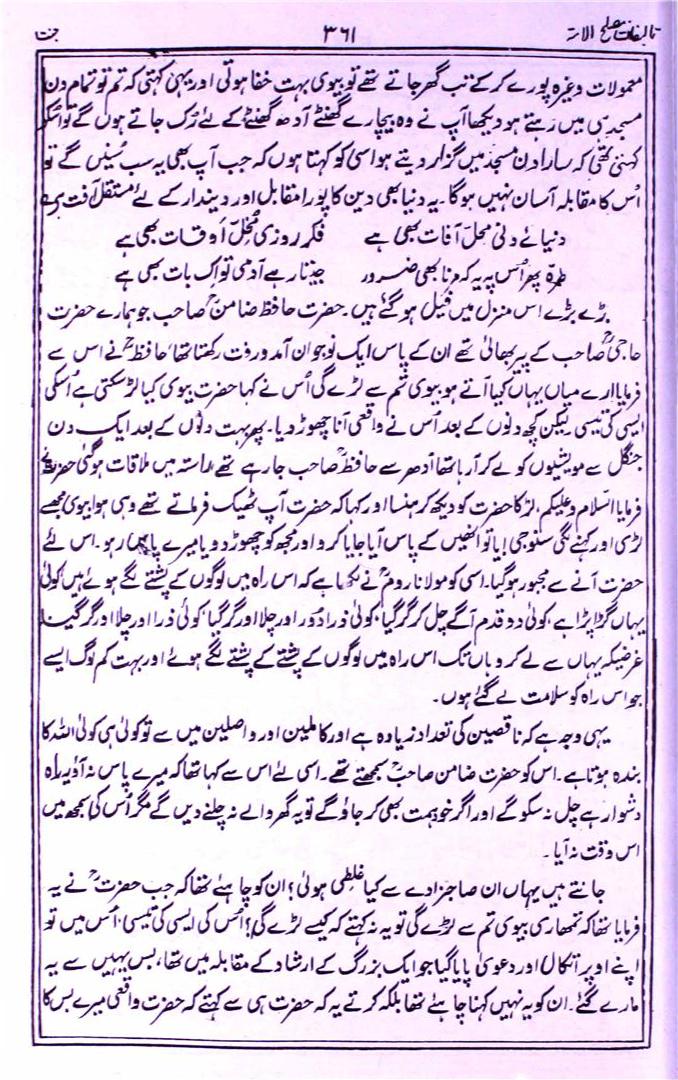 تالیفات مصلح الامۃ ۳۶۱ جنت
معمولات وغیرہ پورے کرکے تب گھر جاتے تھے تو بیوی بہت خفا ہوتی اور یہی کہتی کہ تم تو تمام دن
مسجد ہی میں رہتے ہو دیکھا آپ نے وہ بیچارے گھنٹے آدھ گھنٹے کے لئے رُک جاتے ہوں گے تو اسکو
کہتی تھی کہ سارا دن مسجد میں گزار دیتے ہو اسی کو کہتا ہوں کہ جب آپ بھی یہ سب سنیں گے تو
اُس کا مقابلہ آسان نہیں ہوگا۔ یہ دنیا بھی دین کا پورا مقابل اور دیندار کے لئے مستقل آفت ہے
دنیائے دنی محل آفات بھی ہے فکر روزی مخلِ اوقات بھی ہے
طرّہ پھر اُس پہ یہ کہ مرنا بھی ضرور جیتا رہے آدمی تو اک بات بھی ہے
بڑے بڑے اس منزل میں فیل ہو گئے ہیں۔ حضرت حافظ ضامنؒ صاحب جو ہمارے حضرت
حاجیؒ صاحب کے پیر بھائی تھے ان کے پاس ایک نوجوان آمد ورفت رکھتا تھا، حافظؒ نے اس سے
فرمایا ارے میاں یہاں کیا آتے ہو بیوی تم سے لڑے گی اُس نے کہا حضرت بیوی کیا لڑ سکتی ہے اُسکی
ایسی کی تیسی لیکن کچھ دنوں کے بعد اُس نے واقعی آنا چھوڑ دیا۔ پھر بہت دنوں کے بعد ایک دن
جنگل سے مویشیوں کو لے کر آرہا تھا اُدھر سے حافظؒ صاحب جارہے تھے راستہ میں ملاقات ہوگئی حضرتؒ نے
فرمایا السلام و علیکم، لڑکا حضرت کو دیکھ کر ہنسا اور کہا کہ حضرت آپ ٹھیک فرماتے تھے وہی ہوا بیوی مجھسے
لڑی اور کہنے لگی سنو جی! یا تو انھیں کے پاس آیا جایا کرو اور مجھ کو چھوڑ دو یا میرے پاس رہو۔ اس لئے
حضرت آنے سے مجبور ہوگیا۔ اسی کو مولانا رومؒ نے لکھا ہے کہ اس راہ میں لوگوں کے پشتے لگے ہوئے ہیں کوئی
یہاں گرا پڑا ہے، کوئی دو قدم آگے چل کر گر گیا، کوئی ذرا دُور اور چلا اور گر گیا، کوئی ذرا اور چلا اور گر گیا
غرضیکہ یہاں سے لے کر وہاں تک اس راہ میں لوگوں کے پشتے کے پشتے لگے ہوئے اور بہت کم لوگ ایسے
جو اس راہ کو سلامت لے گئے ہوں۔
یہی وجہ ہے کہ ناقصین کی تعداد زیادہ ہے اور کاملین اور واصلین میں سے تو کوئی ہی کوئی اللہ کا
بندہ ہوتا ہے۔ اس کو حضرت ضامن صاحبؒ سمجھتے تھے۔ اسی لئے اس سے کہا تھا کہ میرے پاس نہ آؤ یہ راہ
دشوار ہے چل نہ سکو گے اور اگر خود ہمت بھی کر جاؤ گے تو یہ گھر والے نہ چلنے دیں گے مگر اُس کی سمجھ میں
اس وقت نہ آیا۔
جانتے ہیں یہاں ان صاحبزادے سے کیا غلطی ہوئی؟ ان کو چاہئے تھا کہ جب حضرتؒ نے یہ
فرمایا تھا کہ تمھاری بیوی تم سے لڑے گی تو یہ نہ کہتے کہ کیسے لڑے گی؟ اُس کی ایسی کی تیسی، اُس میں تو
اپنے اوپر اتکال اور دعویٰ پایا گیا جو ایک بزرگ کے ارشاد کے مقابلہ میں تھا، بس یہیں سے یہ
مارے گئے۔ ان کو یہ نہیں کہنا چاہئے تھا بلکہ کرتے یہ کہ حضرت ہی سے کہتے کہ حضرت واقعی میرے بس کا